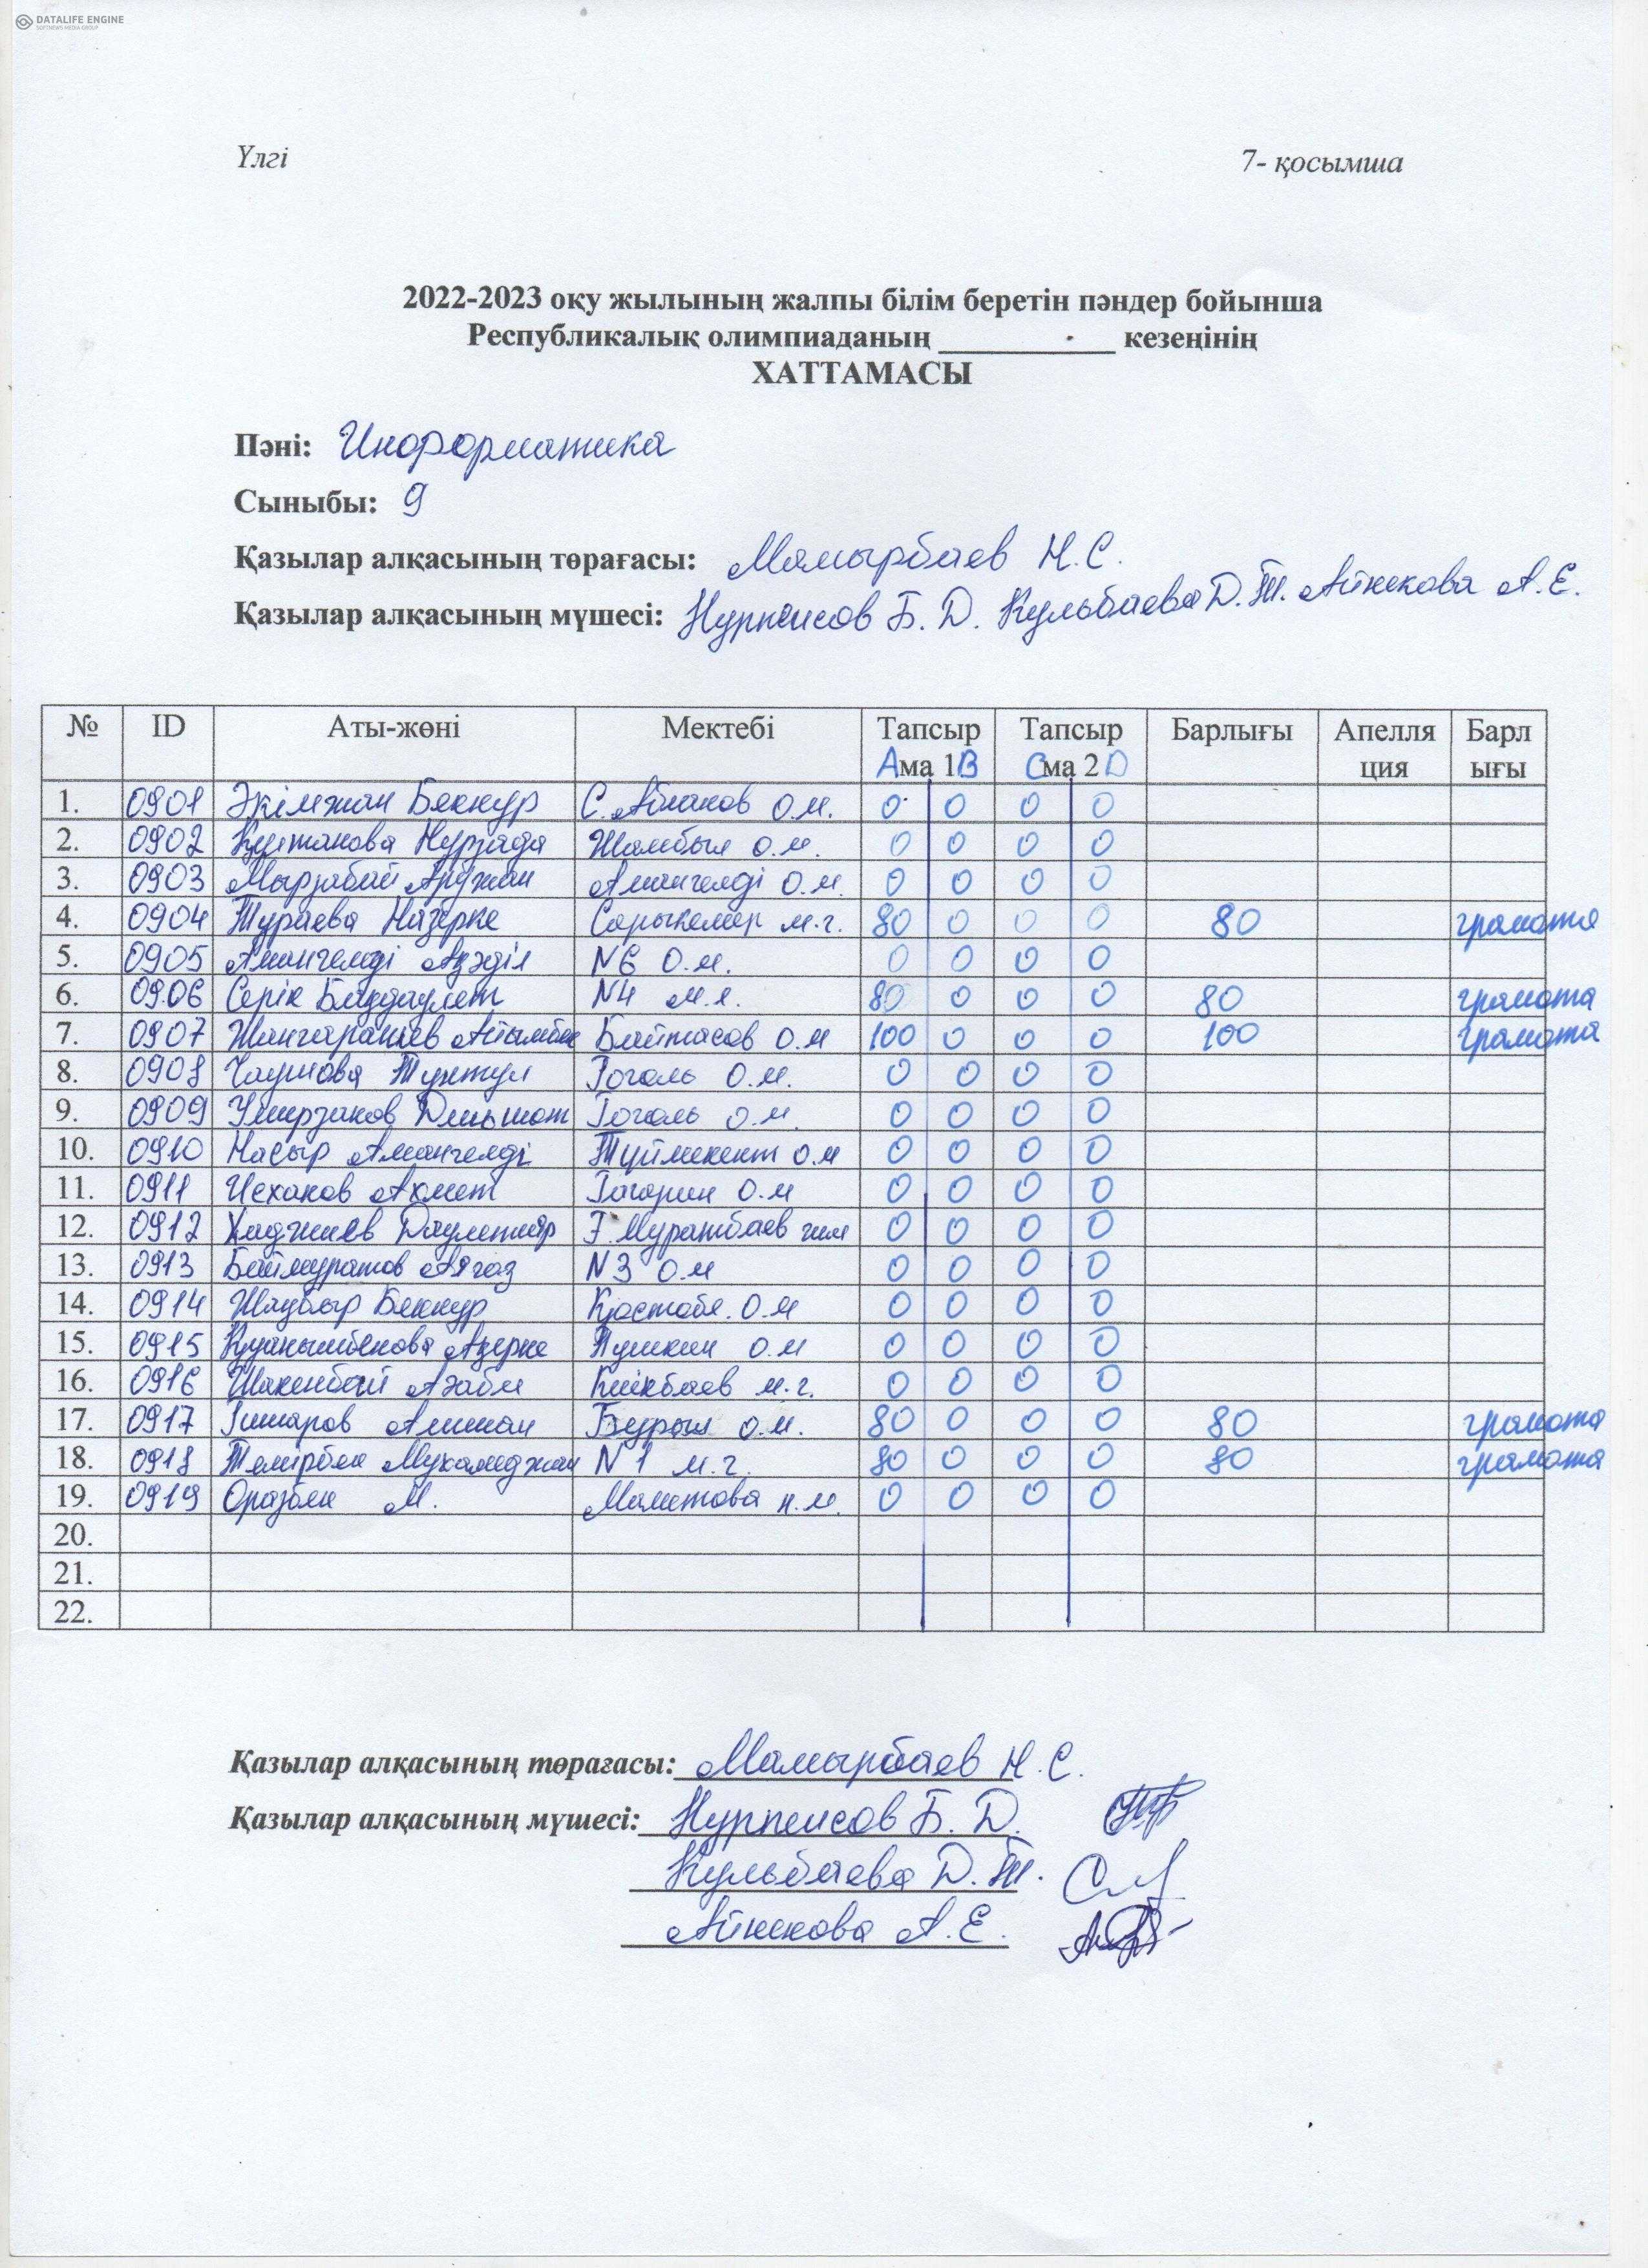 DATALIFE ENGINE
SOFTNEWS MEDIA GROUP
Үлгі 7- қосымша
2022-2023 оқу жылының жалпы білім беретін пәндер бойынша
Республикалық олимпиаданың ____________ кезеңінің
ХАТТАМАСЫ
Пәні: Информатика
Сыныбы: 9
Қазылар алқасының төрағасы: Мамырбаев Н.С.
Қазылар алқасының мүшесі: Нурпеисов Б.Д. Кульбаева Д.Т. Айнекова А.Е.
№ ID Аты-жөні Мектебі Тапсыр Тапсыр Барлығы Апелля Барл
A ма 1 B C ма 2 D ция ығы
1. 0901 Әкімжан Бекнур С.Абланов о.м. 0 0 0 0
2. 0902 Құттанова Нурзада Жамбыл о.м. 0 0 0 0
3. 0903 Мырзабай Аружан Амангелді о.м. 0 0 0 0
4. 0904 Тураева Назерке Сарыкемер м.г. 80 0 0 0 80 грамота
5. 0905 Амангелді Ақәділ N6 О.м. 0 0 0 0
6. 0906 Серік Бекдаулет N4 м.л. 80 0 0 0 80 грамота
7. 0907 Байтасов О.м 100 0 0 0 100 грамота
8. 0908 Чаушова Гоголь О.м. 0 0 0 0
9. 0909 Умирзаков Дильшат Гоголь о.м. 0 0 0 0
10. 0910 Насыр Амангелді Түймекент о.м 0 0 0 0
11. 0911 Исхаков Ахмет Гагарин О.м 0 0 0 0
12. 0912 Хаджиев Даулетияр Ғ.Муратбаев гим 0 0 0 0
13. 0913 Баймуратов Аягөз N3 О.м 0 0 0 0
14. 0914 Бекнур Қостөбе О.м 0 0 0 0
15. 0915 Қуанышбекова Ақерке Пушкин О.м 0 0 0 0
16. 0916 Шакенбай м.г. 0 0 0 0
17. 0917 Алишан Бурыл о.м. 80 0 0 0 80 грамота
18. 0918 Темірбек Мухамеджан N1 м.г. 80 0 0 0 80 грамота
19. 0919 Оразбек М. Маметова н.м. 0 0 0 0
20.
21.
22.
Қазылар алқасының төрағасы: Мамырбаев Н.С.
Қазылар алқасының мүшесі: Нурпеисов Б.Д.
Кульбаева Д.Т.
Айнекова А.Е.